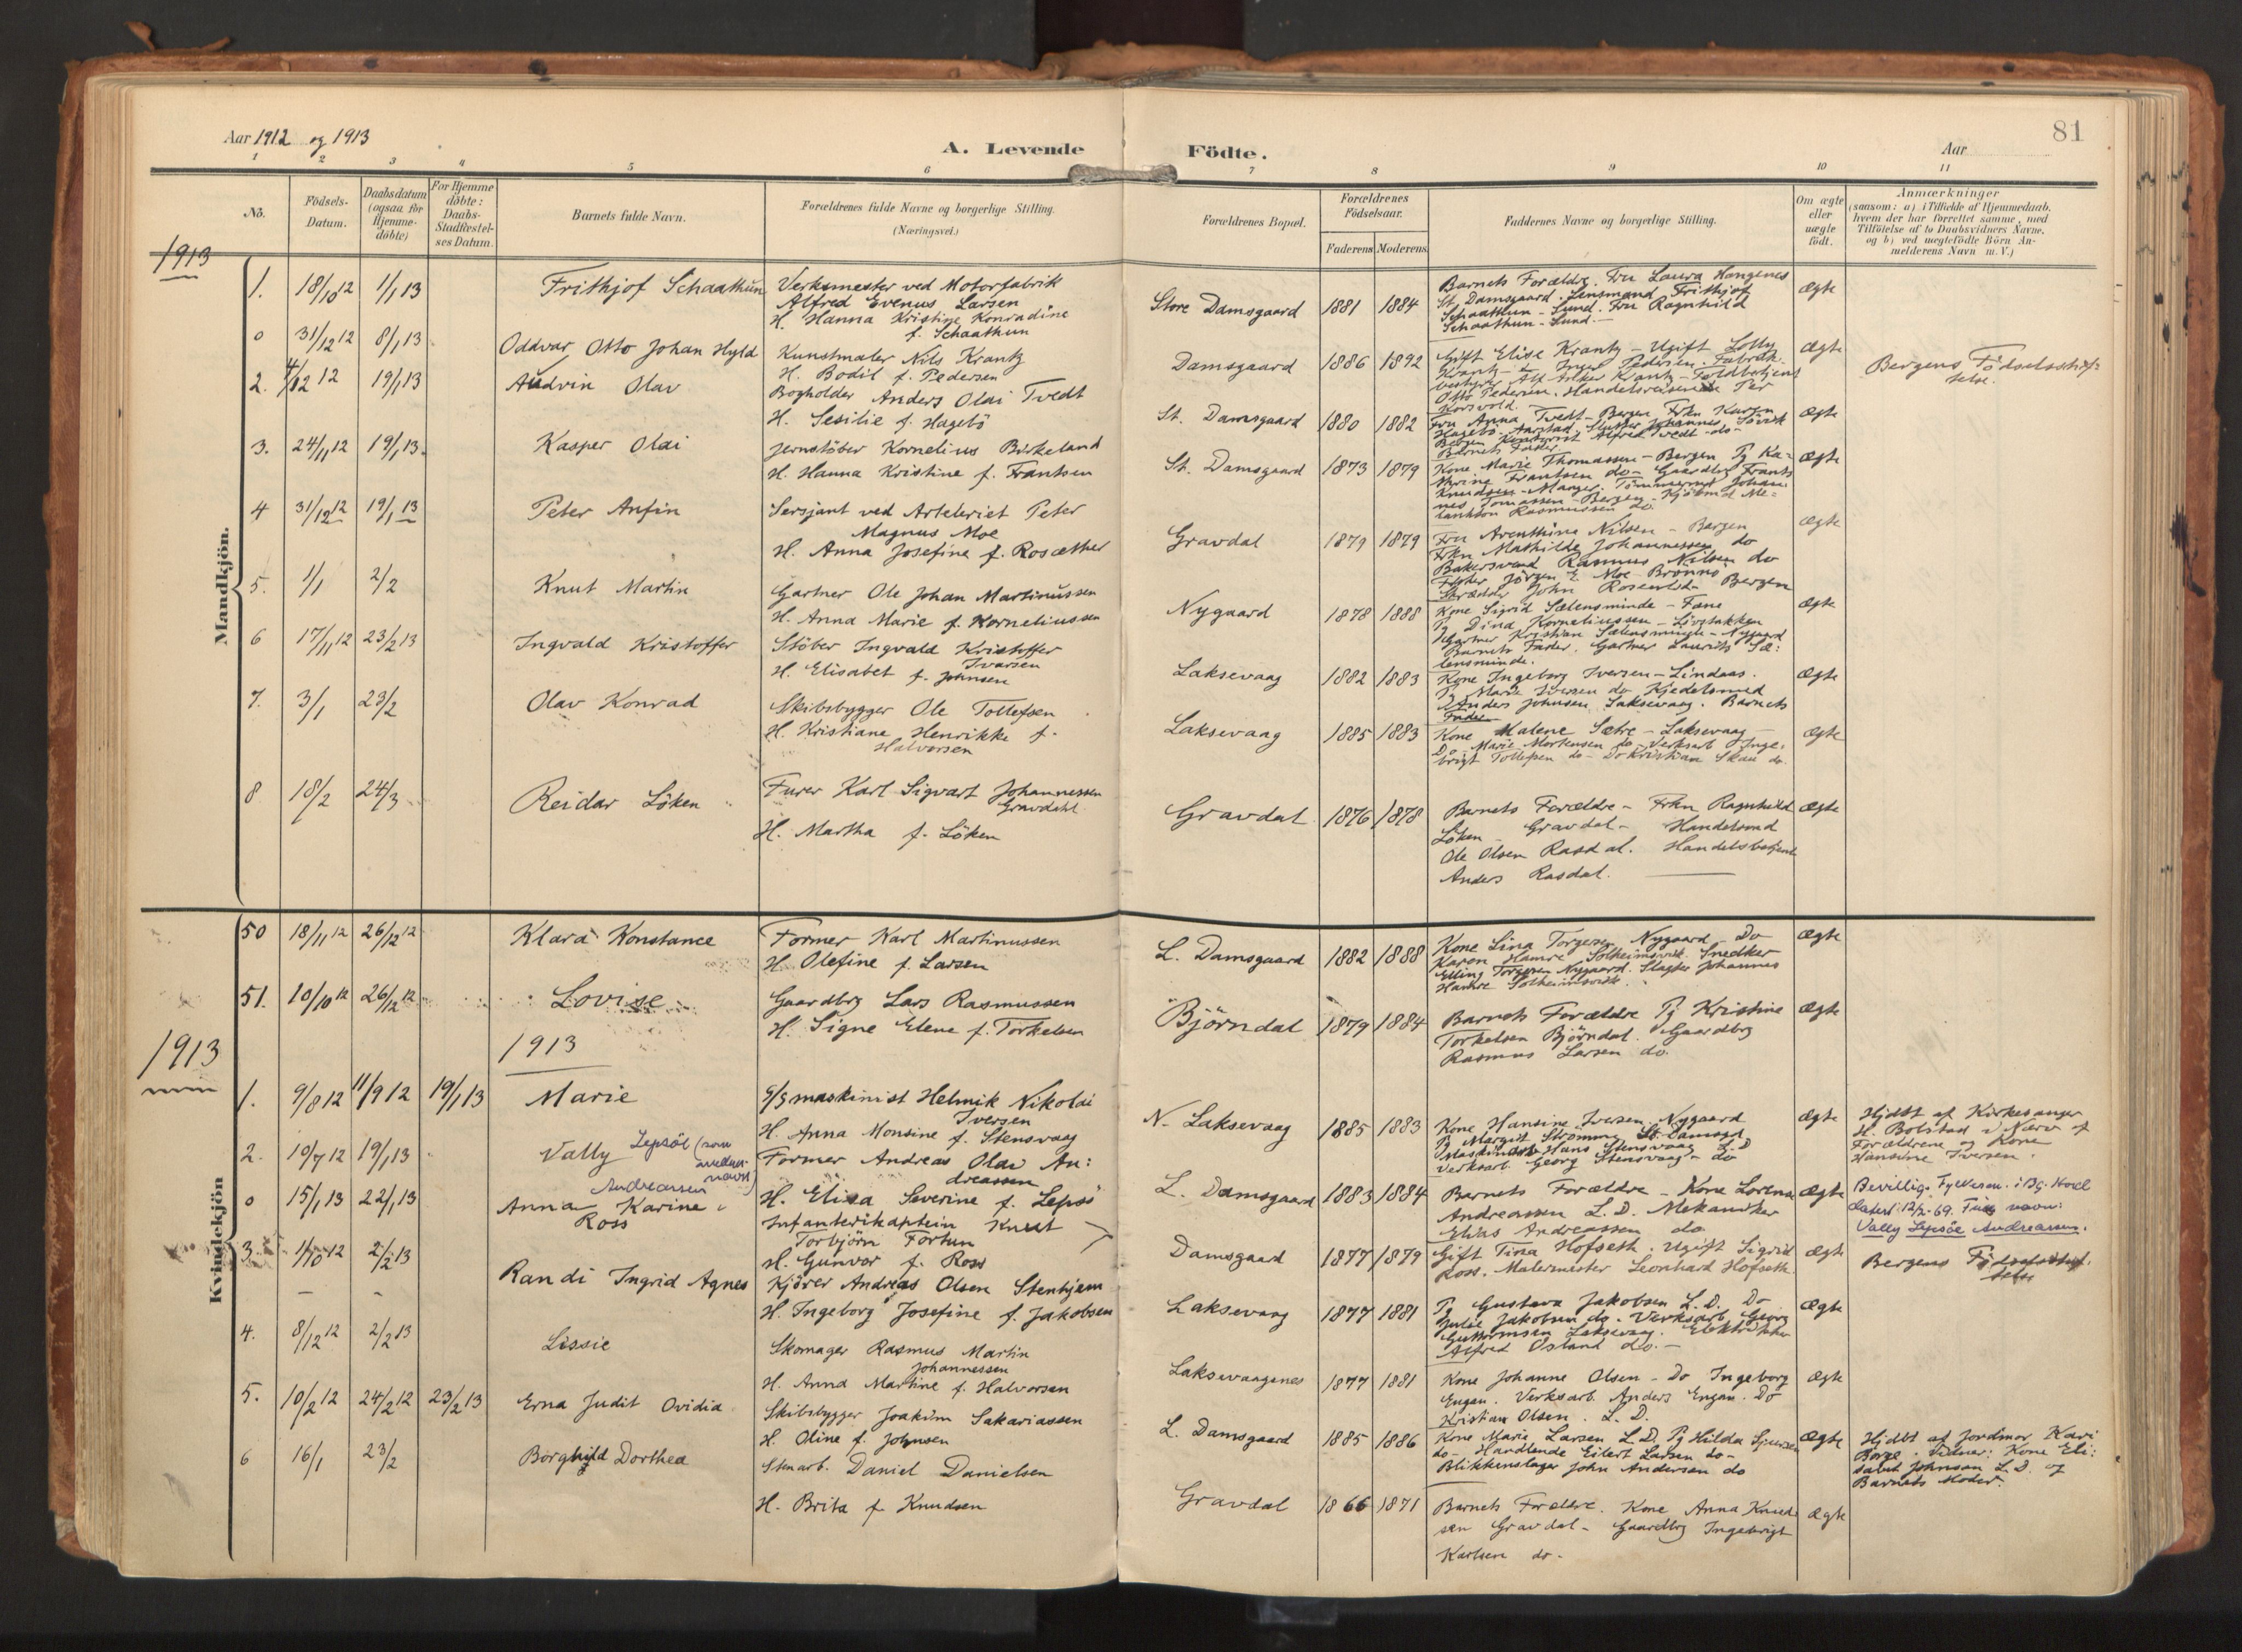 Aar 1912 og 1913
A. Levende
Födte.
Aar
81
1 2 3 4 5 6 7 8 9 10 11
No.
Födsels-
Datum.
Daabsdatum
(ogsaa for
Hjemme-
döbte)
For Hjemme
döbte:
Daabs-
Stadfæstel-
ses Datum.
Barnets fulde Navn.
Forældrenes fulde Navne og borgerlige Stilling.
(Næringsvei.)
Forældrenes Bopæl.
Forældrenes
Födselsaar.
Faderens Moderens
Faddernes Navne og borgerlige Stilling.
Om ægte
eller
uægte
födt.
Anmærkninger
(saasom: a) i Tilfælde af Hjemmedaab,
hvem der har forrettet samme, med
Tilföielse af to Daabsvidners Navne,
og b) ved uægtefödte Börn An-
melderens Navn m. V.)
1913
Mandkjön.
1. 18/10 12 1/1 13 Frithjof Schaathun
Verksmester ved Motorfabrik
Alfred Evenus Larsen
H. Hanna Kristine Konradine
f. Schaathun
Store Damsgaard 1881 1884
Barnets Forældre. Fru Laura Hangenes
St. Damsgaard. Lensmand Frithjof
Schaathun - Sund. Fru Ragnhild
Schaathun - Sund.
Ægte
0 31/12 12 8/1 13 Oddvar Otto Johan Hyld
Kunstmaler Nils Krantz
H. Bodil f. Pedersen
Damsgaard 1886 1892
Gift Elise Krantz - Ugift Lolly
Krantz - Inga Pedersen. Fabrik-
Otto Pedersen. Handelsreisende Per
Korsvold.
Ægte
Bergens Födselsstif-
telse.
2. 4/12 12 19/1 13 Audvin Olav
Bogholder Anders Olai Tvedt
H. Sesilie f. Hagebö
St. Damsgaard 1880 1882
Fru Anna Tvedt - Bergen Frkn Karen
Bergen Kontorist Alfred Tvedt do
Barnets Fader
Ægte
3. 24/11 12 19/1 13. Kasper Olai
Jernstöber Kornelius Birkeland
H. Hanna Kristine f. Frantsen
St. Damsgaard 1873 1879
Kone Marie Thomassen - Bergen Pg Ka-
thrine Frantsen do - Gaardbrg Frants
Knudsen - Manger. Tömmermd Johan-
nes Tomassen - Bergen - Kjöbmd Me-
lankton Rasmussen do.
Ægte
4 31/12 12 19/1 13 Peter Anfin
Sersjant ved Arteleriet Peter
Magnus Moe
H. Anna Josefine f. Rosæther
Gravdal 1879 1879
Fru Arenthine Nilsen - Bergen
Frkn Mathilde Johannessen do
Bakersvend Rasmus Nilsen do
Fisker Jörgen E. Moe - Brönnö
Skrædder John Rosenlid - Bergen
Ægte
5. 1/1 2/2 Knut Martin
Gartner Ole Johan Martinussen
H. Anna Marie f. Korneliussen
Nygaard 1878 1888
Kone Sigrid Sælensminde - Fane
Pg Dina Korneliussen - Lövstakken
Gartner Kristian Sælensminde - Nygaard
Barnets Fader. Gartner Laurits Sæ-
lensminde.
Ægte
6 17/11 12 23/2 13 Ingvald Kristoffer
Stöber Ingvald Kristoffer
Ivarsen
H. Elisabet f. Johnsen
Laksevaag 1882 1883
Kone Ingeborg Iversen - Lindaas.
Pg Marie Iversen do Kjedelsmed
Anders Johnsen Laksevaag. Barnets
Fader
Ægte
7. 3/1 23/2 Olav Konrad
Skibsbygger Ole Tollefsen
H. Kristiane Henrikke f.
Halvorsen
Laksevaag 1885 1883
Kone Malene Sætre - Laksevaag -
Do Marie Mortensen do - Verksarb Inge-
brigt Tollefsen do - Do Kristian Skau do.
Ægte
8 18/2 24/3 Reidar Löken
Furer Karl Sigvart Johannessen
Gravdahl
H. Martha f. Löken
Gravdal 1876 1878
Barnets Forældre - Frkn Ragnhild
Löken - Gravdal - Handelsmd
Ole Olsen Rasdal. Handelsbetjent
Anders Rasdal.
Ægte
Kvindekjön
50 18/11 12 26/12 12 Klara Konstance
Former Karl Martinussen
H. Olefine f. Larsen
L. Damsgaard 1882 1888
Kone Lina Torgersen Nygaard - Do
Karen Hamre Solheimsvik. Snedker
Elling Torgersen Nygaard. Slagter Johannes
Hamre Solheimsvik.
Ægte
51. 10/10 12 26/12 12 Lovise
Gaardbrg Lars Rasmussen
H. Signe Elene f. Torkelsen
Björndal 1879 1884
Barnets Forældre Pg Kristine
Torkelsen Björndal. Gaardbrg
Rasmus Larsen do.
Ægte
1913
1913
1. 9/8 12 11/9 12 19/1 13 Marie
maskinist Helmik Nikolai
Iversen
H. Anna Monsine f. Stensvaag
N. Laksevaag 1885 1883
Kone Hansine Iversen Nygaard
Pg Margit Strömme St. Damsgd
Maskinarb Hans Stensvaag L. D
Verksarb. Georg Stensvaag - do
Ægte
Hjdbt af Kirkesanger
H. Bolstad i Nærv af
Forældrene og Kone
Hansine Iversen.
2. 10/7 12 19/1 13 Vally Lepsöe (som
mellom-
navn)
Andreassen
Former Andreas Olav An:
dreassen
H. Elisa Severine f. Lepsö
L. Damsgaard 1883 1884
Barnets Forældre - Kone Lorensa
Andreassen L. D. Mekaniker
Elias Andreassen do.
Ægte
Bevillig. Fylkesm. i Bg. Hord
datert 12/2-69. Fuldt navn:
Vally Lepsöe Andreassen.
0 15/1 13 22/1 13 Anna Karine
Ross
Infanterikaptein Knut
Torbjörn Fortun
H. Gunvor f. Ross
Damsgaard 1877 1879
Gift Tina Hofseth. Ugift Sigrid
Ross. Malermester Leonhard Hofseth.
Ægte
Bergens Födselsstif-
telse
3. 1/10 12 2/2 13 Randi Ingrid Agnes
Kjörer Andreas Olsen Stenhjem
H. Ingeborg Josefine f. Jakobsen
Laksevaag 1877 1881
Pg Gustava Jakobsen L. D. Do
Julie Jakobsen do. Verksarb Georg
Guttormsen Laksevaag. Elektriker
Alfred Östand do.
Ægte
4. 8/12 12 2/2 13 Lissie
Skomager Rasmus Martin
Johannessen
H. Anna Martine f. Halvorsen
Laksevaagenes 1877 1881
Kone Johanne Olsen - Do Ingeborg
Engan. Verksarb. Anders Engan. Do
Kristian Olsen. L. D.
Ægte
5. 10/2 12 24/2 12 23/2 13 Erna Judit Ovidia
Skibsbygger Joakim Sakariassen
H. Oline f. Johnsen
L. Damsgaard 1885 1886
Kone Marie Larsen L. D. Pg Hilda Sjursen
do - Handlende Eilert Larsen do -
Blikkenslager John Andersen do
Ægte
Hjdbt af Jordmor Kari
Borge. Vidner: Kone Eli:
sabet Johnsen L. D. og
Barnets Moder.
6 16/1 23/2 Borghild Dorthea
Stenarb. Daniel Danielsen
H. Brita f. Knudsen
Gravdal 1866 1871
Barnets Forældre. Kone Anna Knud-
sen Gravdal - Gaardbrg Ingebrigt
Karlsen do.
Ægte